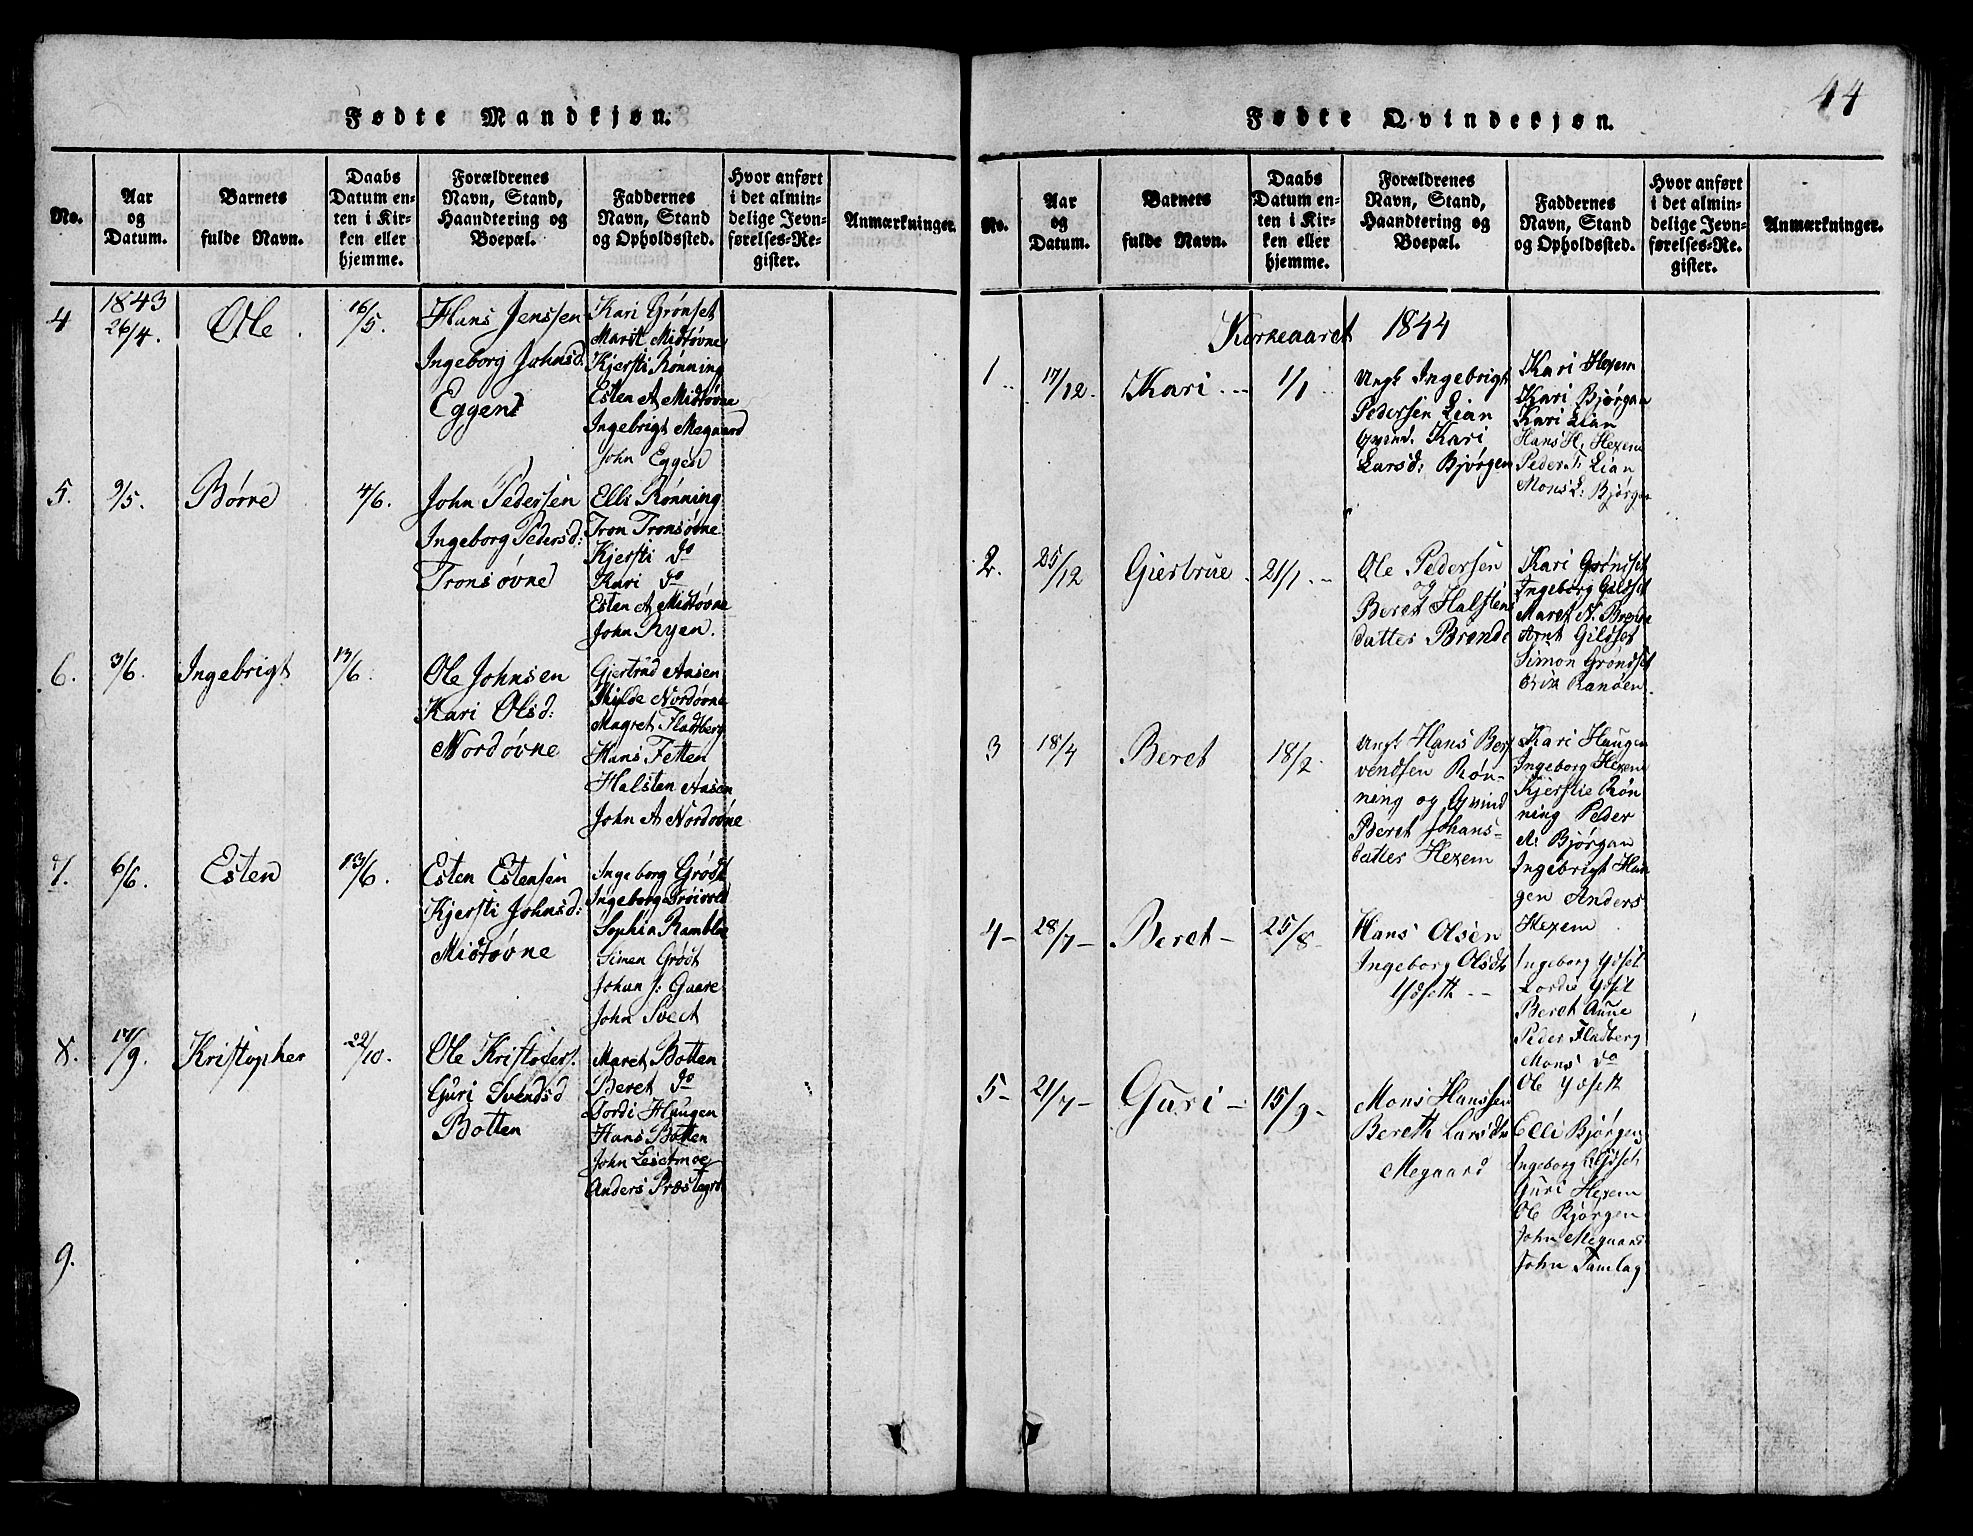 44
Fødte Mandkjøn.
No.
Aar
og
Datum.
Barnets
fulde Navn.
Daabs
Datum en-
ten i Kir-
ken eller
hjemme.
Forældrenes
Navn, Stand,
Haandtering og
Boepæl.
Faddernes
Navn, Stand
og Opholdssted.
Hvor anført
i det almin-
delige Jevn-
førelses-Re-
gister.
Anmærkninger.
4
1843
26/4.
Ole
16/5.
Hans Jenssen
Ingeborg Johnsd.
Eggen
Kari Grønset
Marit Midtøvne
Kjersti Rønning
Esten A Midtøvne
Ingebrigt Megaard
John Eggen
5.
2/5.
Børne
4/6.
John Pedersen
Ingeborg Pedersd:
Tronsøvne
Elli Rønning
Tron Tronsøvne
Kjersti do
Kari do
Esten A Midtøvne
John Ryen.
6.
3/6.
Ingebrigt
13/6.
Ole Johnsen
Kari Olsd:
Nordøvne
Gjertrud Aasen
Nordøvne
Magret Fladberg
Hans Fetten
Halsten Aasen
John A Nordøvne
7.
6/6.
Esten
13/6.
Esten Estensen
Kjersti Johnsd:
Midtøvne
Ingeborg Grødt
Ingeborg
Sophia Ramblo
Simen Grødt
Johan J: Gaare
John Svect
8.
17/9.
Kristopher
22/10.
Ole Kristofers.
Guri Svendsd
Botten
Maret Botten
Beret do
Gordi Haugen
Hans Botten
John Leretmoe
Anders Præstegrd
9.
Fødte Qvindekjøn.
No.
Aar
og
Datum.
Barnets
fulde Navn.
Daabs
Datum en-
ten i Kir-
ken eller
hjemme.
Forældrenes
Navn, Stand,
Haandtering og
Boepæl.
Faddernes
Navn, Stand
og Opholdssted.
Hvor anført
i det almin-
delige Jevn-
førelses-Re-
gister.
Anmærkninger.
Kirkeaaret 1844
1
17/12.
Kari
1/1
Ungk Ingebrigt
Pedersen Lian
Qvind. Kari
Larsd: Bjørgen
Kari Hexem
Kari Bjørgan
Kari Lian
Hans H. Hexem
Peder T. Lian
Mons L: Bjørgan
2.
25/12
Giertrue
21/1.
Ole Pedersen
og
Beret Halstens
datter Brende
Kari Grøndset
Ingeborg Gildset
Maret A. Brende
Arnt Gildset
Simon Grøndset
Erik Ranøen.
3
18/4
Beret
18/2.
Ungk Hans Ber
vendsen Røn-
ning og Qvind
Beret Johans-
datter Hexem
Kari Haugen
Ingeborg Hexem
Kjerstie Røn
ning Peder
A: Bjørgan
Ingebrigt Hau
gen Anders
Hexem
4-
28/7-
Beret-
25/8-
Hans Olsen
Ingeborg Olsdtr
Ydseth
Ingeborg Ydset
Lordie Ydset
Beret Aune
Peder Fladberg
Mons do
Ole Ydseth
5-
21/7-
Guri-
15/9-
Mons Hanssen
Bereth Larsdtr
Megaard
Elli Bjørgen
Ingeborg Ydset
Guri Hexem
Ole Bjørgen
John Megaard
John Tamlag